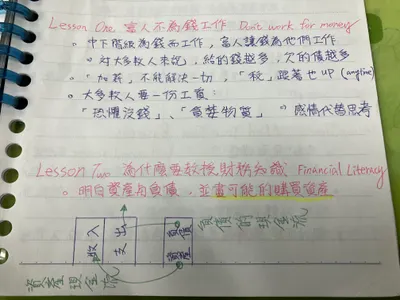 Lesson One 富人不為錢工作 Don't work for money
。中下階級為錢而工作，富人讓錢為他們工作
。對大多數人來說，給的錢越多，欠的債越多
。「加薪」不能解決一切，「稅」跟著也up (anytime)
。大多數人要一份工資：
「恐懼沒錢」、「貪婪物質」 。感情代替思考
Lesson Two 為什麼要教授財務知識 Financial Literacy
。明白資產與負債，並盡可能的購買資產。
收入
支出
負債
資產
負債的現金流
資產現金流